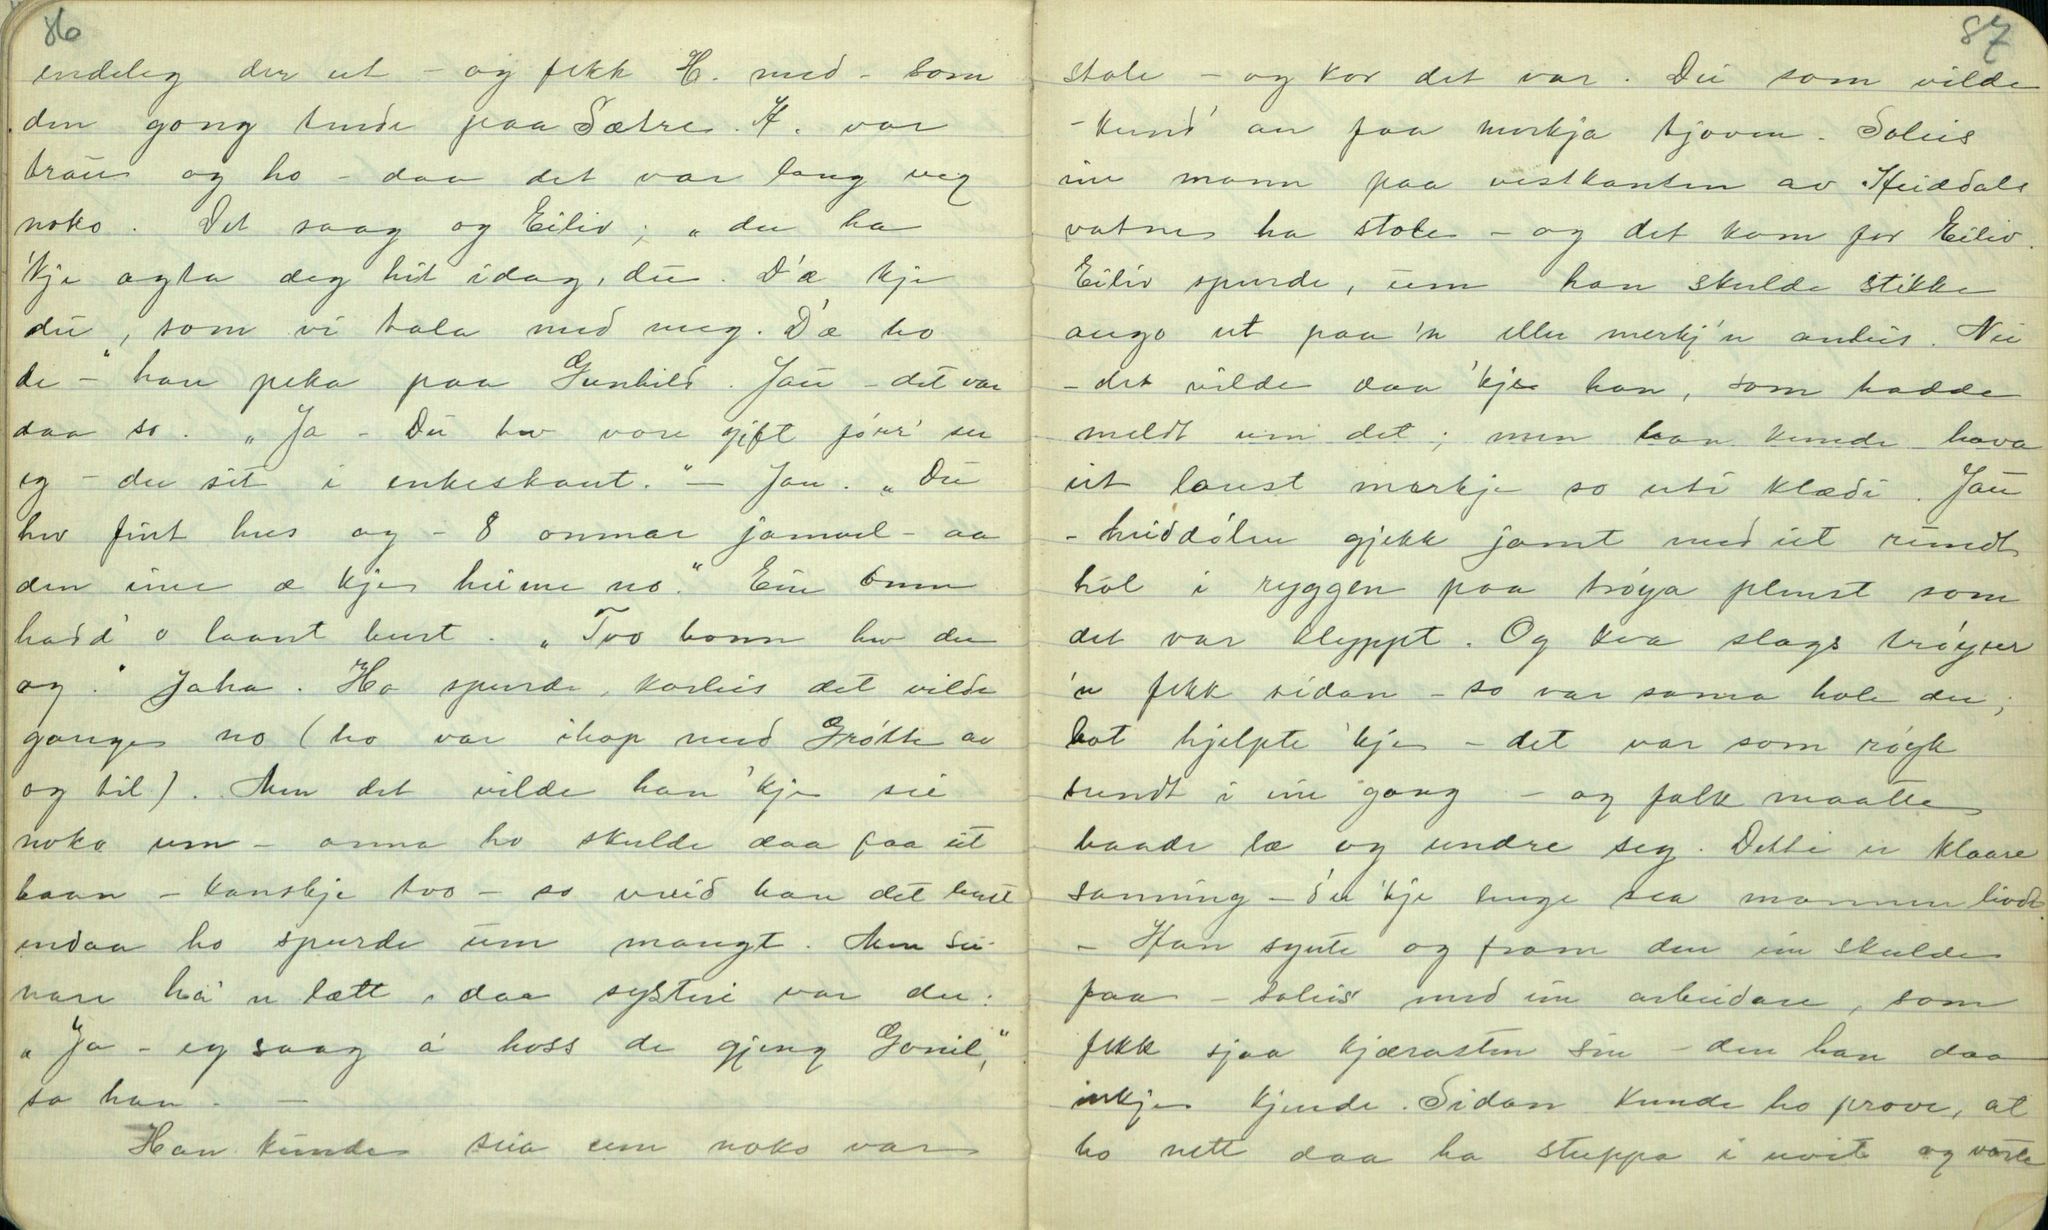 86
endeleg der ut - og fekk H. med - som
den gong tende paa Sætre. H. var
traus og ho - daa det var lang veg
noko. Det saag og Eiliv; „du ha
'kje agta deg hit idag, du. D'æ kje
du, som vi tala med meg. D'æ ho
de -" han peka paa Gunhild. Jau - det var
daa so. „Ja - Du hev vore gift förr' ser
eg - du sit i enkestant." - Jau. „Du
hev fint hus og - 8 ommar jamvel - aa
den eine æ kje heime no." Ein omn
hadd' o laant burt. „Tvo bonn hev du
og." Jaha. Ho spurde, korleis det vilde
ganga no (ho var ihop med Grótte av
og til). Men det vilde han 'kje sei
noko um - anna ho skulde daa faa eit
baan - kanskje tvo - so vreid han det burt
endaa ho spurde um mangt. Men sei-
nare ha' n lætt, daa systeri var der:
„Ja - eg saag á hoss de gjeng Gonil,"
sa han. -
Han kunde seia um noko var
87
stole - og kor det var. Dei som vilde
- kund' an faa merkja tjoven. Soleis
ein mann paa vestkanten av Heiddals
vatne ha stole - og det kom for Eiliv.
Eiliv spurde, um han skulde stikke
augo ut paa 'n eller merkj'n anleis. Nei
- det vilde daa 'kje han, som hadde
meldt um det; men han kunde hava
eit laust merkje so uti klædi. Jau
- heiddólen gjekk jamt med eit rundt
hol i ryggen paa trøya plent som
det var klyppt. Og kva slags trøyer
'n fekk sidan - so var sama hole der;
bot hjelpte 'kje - det var som røyk
sundt i ein gong - og folk maatte
baade læ og undre seg. Dette er klaare
sanning - d'er 'kje lenge sea mannen livde.
- Han synte og fram den ein skulde
faa - soleis med ein arbeidare, som
fekk sjaa kjærasten sin - den han daa
inkje kjende. Sidan kunde ho prove, at
ho nett daa ha stuppa i uvit og vorte